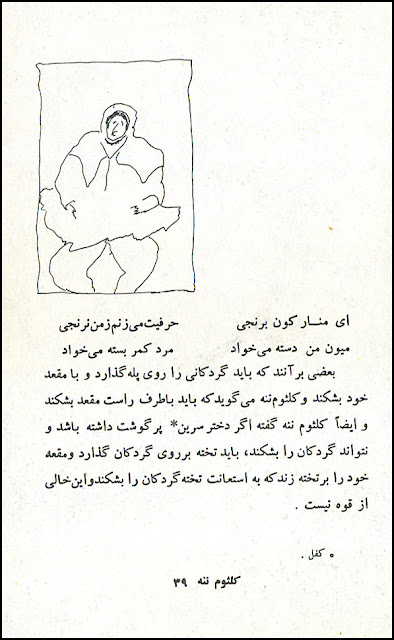 ای منار کون برنجی حرفیت می‌زنم ز من نرنجی
میون من دسته می‌خواد مرد کمر بسته می‌خواد
بعضی برآنند که باید گردکانی را روی پله گذارد و با مقعد
خود بشکند و کلثوم ننه می‌گوید که باید باطرف راست مقعد بشکند
و ایضاً کلثوم ننه گفته اگر دختر سرین* پرگوشت داشته باشد و
نتواند گردکان را بشکند، باید تخته برروی گردکان گذارد ومقعد
خود را برتخته زند که به استعانت تخته گردکان را بشکند و این خالی
از قوه نیست .
* کفل .
کلثوم ننه ۳۹